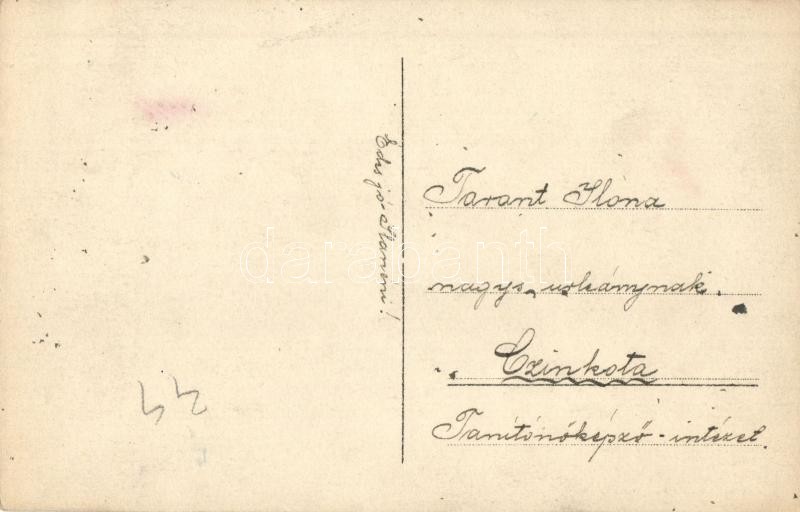 Edes jó Ilaneni!
Tarant Ilona
nagys. urleánynak.
Czinkota
Tanítónőképző-intézet.
darabanth